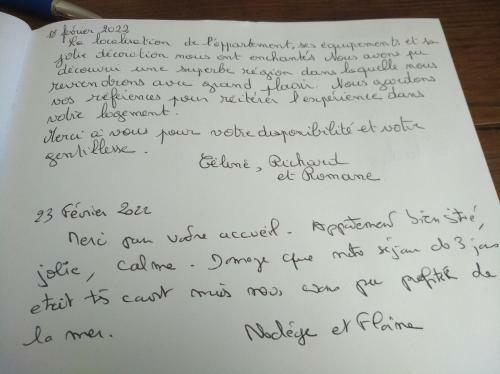 février 2022
La localisation de l'appartement, ses équipements et sa
jolie décoration nous ont enchantés. Nous avons pu
découvrir une superbe région dans laquelle nous
reviendrons avec grand plaisir. Nous gardons
vos références pour réitérer l'expérience dans
votre logement.
Merci à vous pour votre disponibilité et votre
gentillesse.
Céline, Richard
et Romane
23 Février 2022
Merci pour votre accueil. Appartement bien situé,
jolie, calme. Domage que notre séjour de 3 jours
etait très court mais nous avons pu profiter de
la mer.
Nadége et